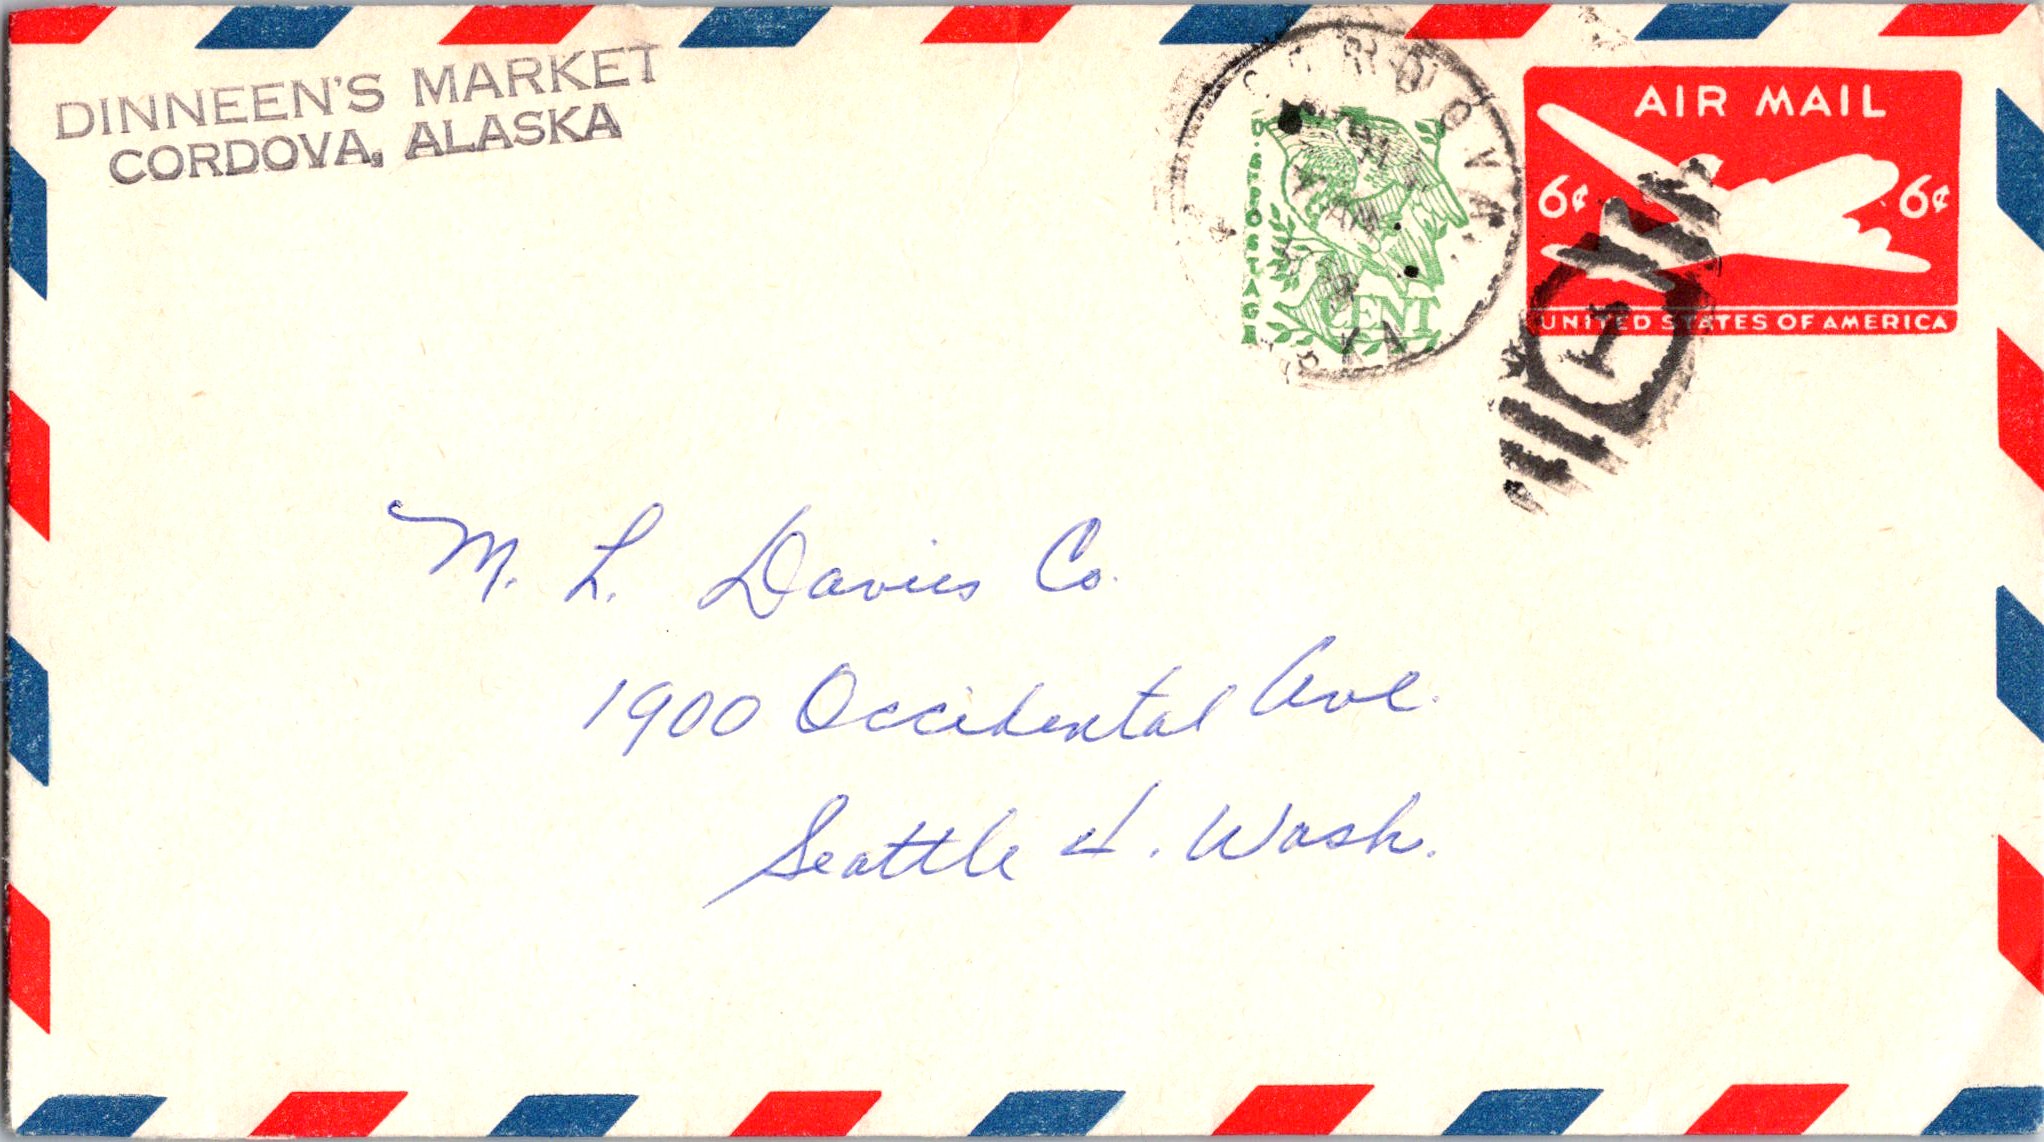 DINNEEN'S MARKET
CORDOVA, ALASKA
CORDOVA,
U.S. POSTAGE
CENT
AIR MAIL
6¢ 6¢
UNITED STATES OF AMERICA
1
M. L. Davies Co.
1900 Occidental Ave.
Seattle 4. Wash.